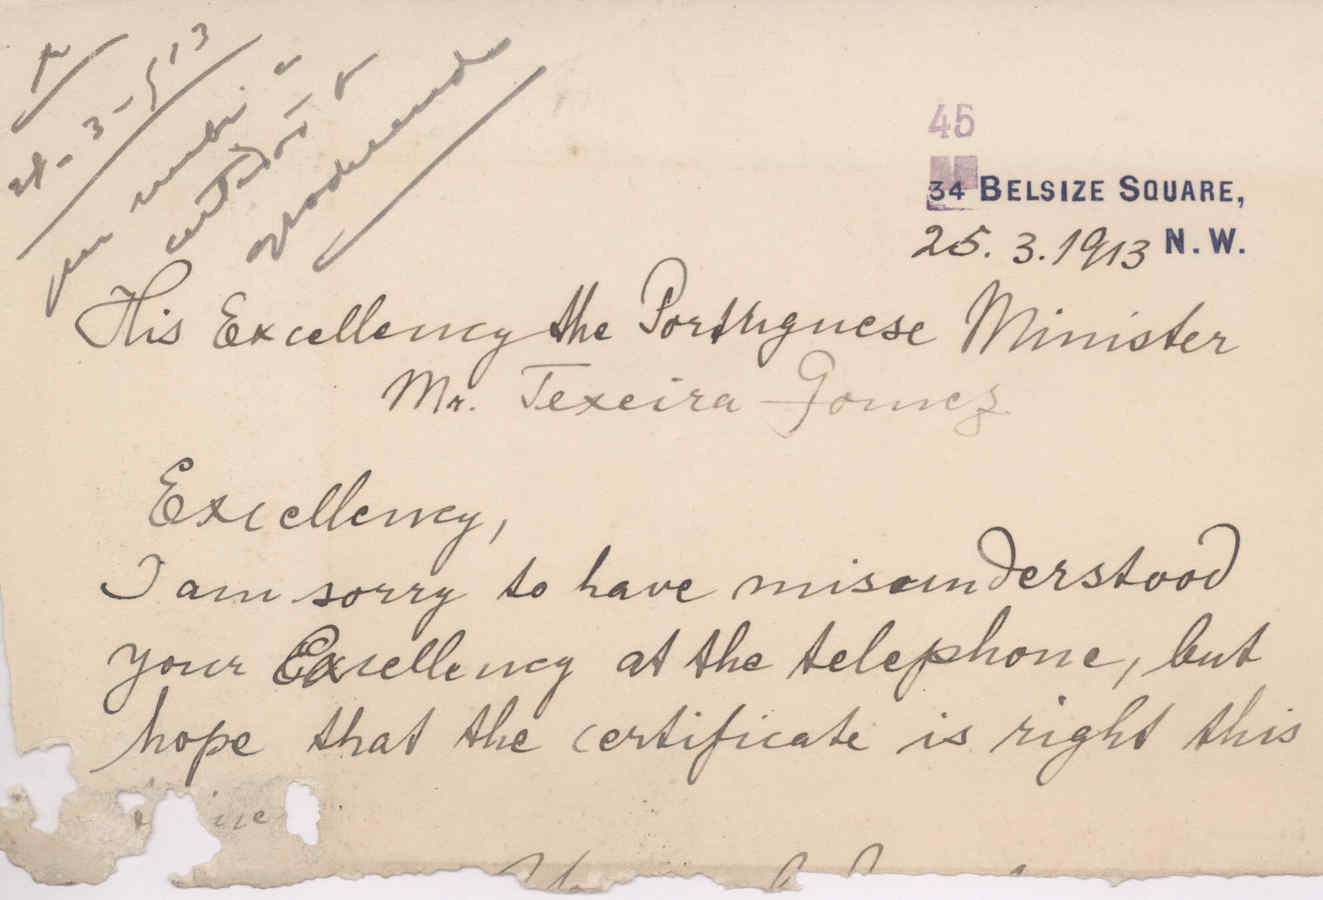 28-3-913
45
34 BELSIZE SQUARE,
25.3.1913 N.W.
His Excellency the Portuguese Minister
Mr. Texeira Gomez
Excellency,
I am sorry to have misunderstood
your Excellency at the telephone, but
hope that the certificate is right this